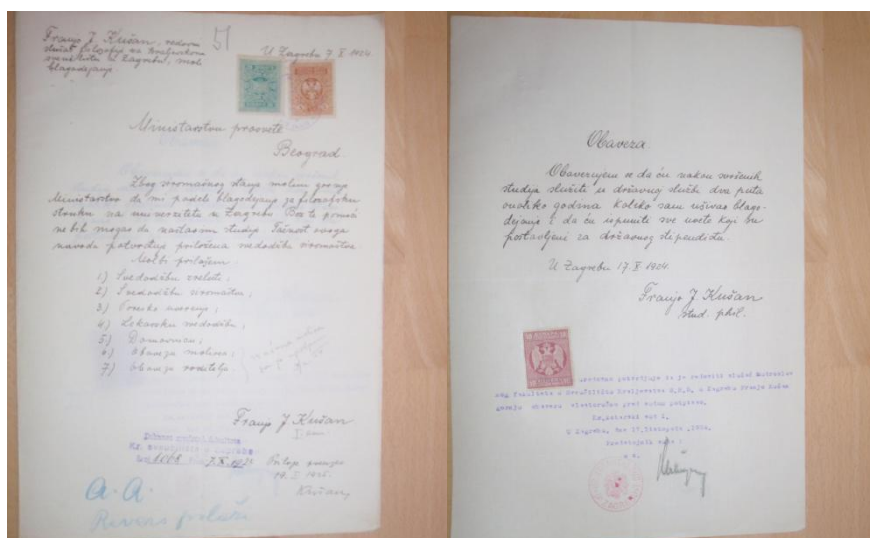 Franjo J. Kušan, redovni
slušač filozofije na
u Zagrebu, moli
blagodejanje
51
U Zagrebu 7. X. 1924.
Ministarstvu prosvete
Beograd
Zbog siromašnog stanja molim gornje
Ministarstvo da mi podeli blagodejanje za filozofsku
struku na univerzitetu u Zagrebu Bez te pomoći
ne bih mogao da nastavim studije Tačnost ovoga
navoda potvrdjuje priložena svedodžba siromaštva.
Molbi prilažem:
1) Svedodžbu zrelosti;
2) Svedodžbu siromaštva;
3) Poresko uverenje;
4) Lekarsku svedodžbu;
5) Domovnicu;
6) Obavezu molioca;
7) Obavezu roditelja.
Franjo J. Kušan
1068 7. X. 1925
Kušan
a. a.
Obaveza.
Obavezujem se da ću nakon svršenih
studija služiti u državnoj službi dva puta
onoliko godina koliko sam uživao blago-
dejanje i da ću ispuniti sve uvete koji su
postavljeni za državnog stipendistu.
U Zagrebu 17. X. 1924.
Franjo J. Kušan
stud. phil.
potvrdjuje da je redoviti slušač Mudroslov
nog fakulteta u Sveučilišta Kraljevstva S.H.S. u Zagrebu Franjo Kušan
gornju obavezu vlastoručno pred nama potpisao.
U Zagrebu, dne 17. listopada 1924.